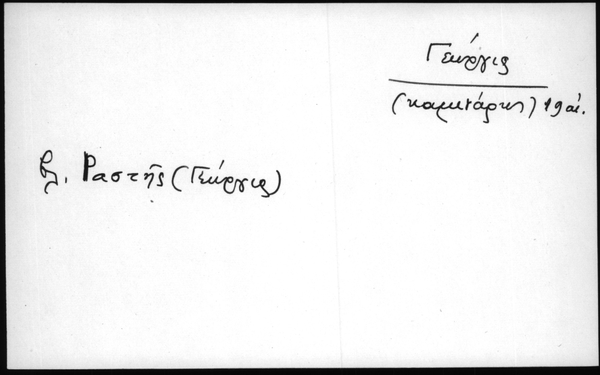 Γεώργις
(καμινάρης) 19 αἰ.
βλ. Ραστῆς (Γεώργις)